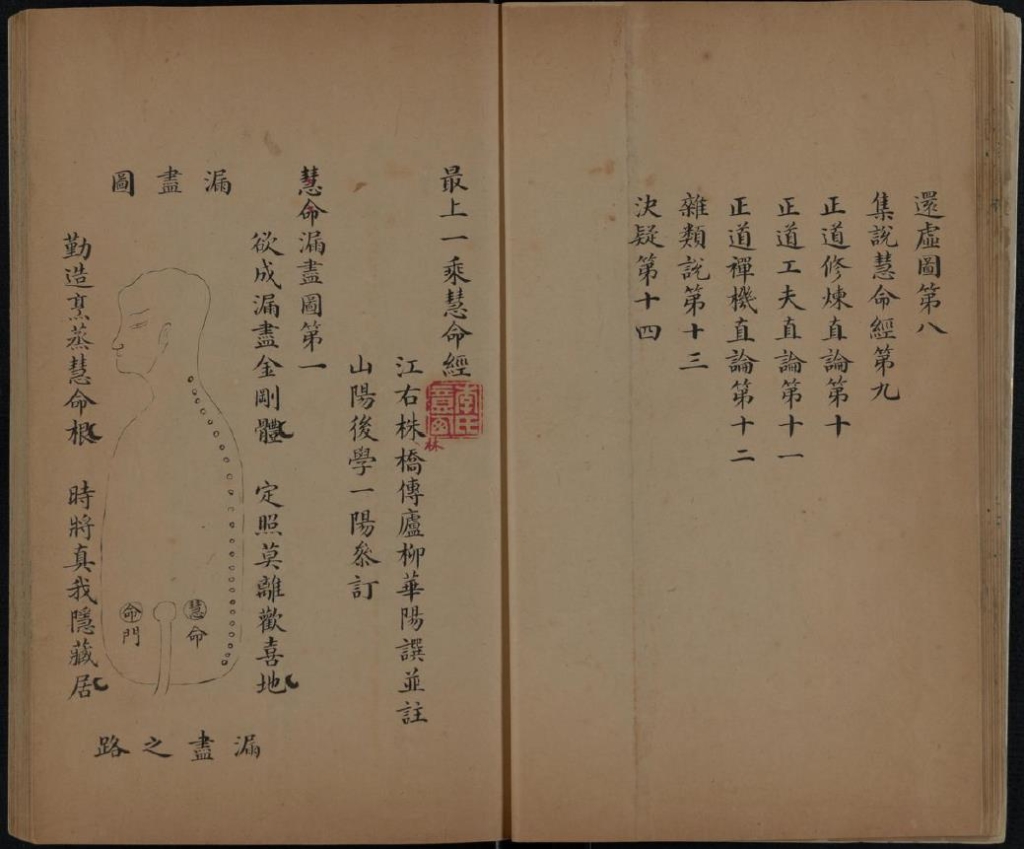 還虛圖第八
集說慧命經第九
正道修煉直論第十
正道工夫直論第十一
正道禪機直論第十二
雜類說第十三
決疑第十四
最上一乘慧命經
江右株橋傳廬柳華陽譔並註
林
山陽後學一陽叅訂
慧命漏盡圖第一
欲成漏盡金剛體 定照莫離歡喜地
漏盡圖
慧命
命門
勤造烹蒸慧命根 時將真我隱藏居
漏盡之路